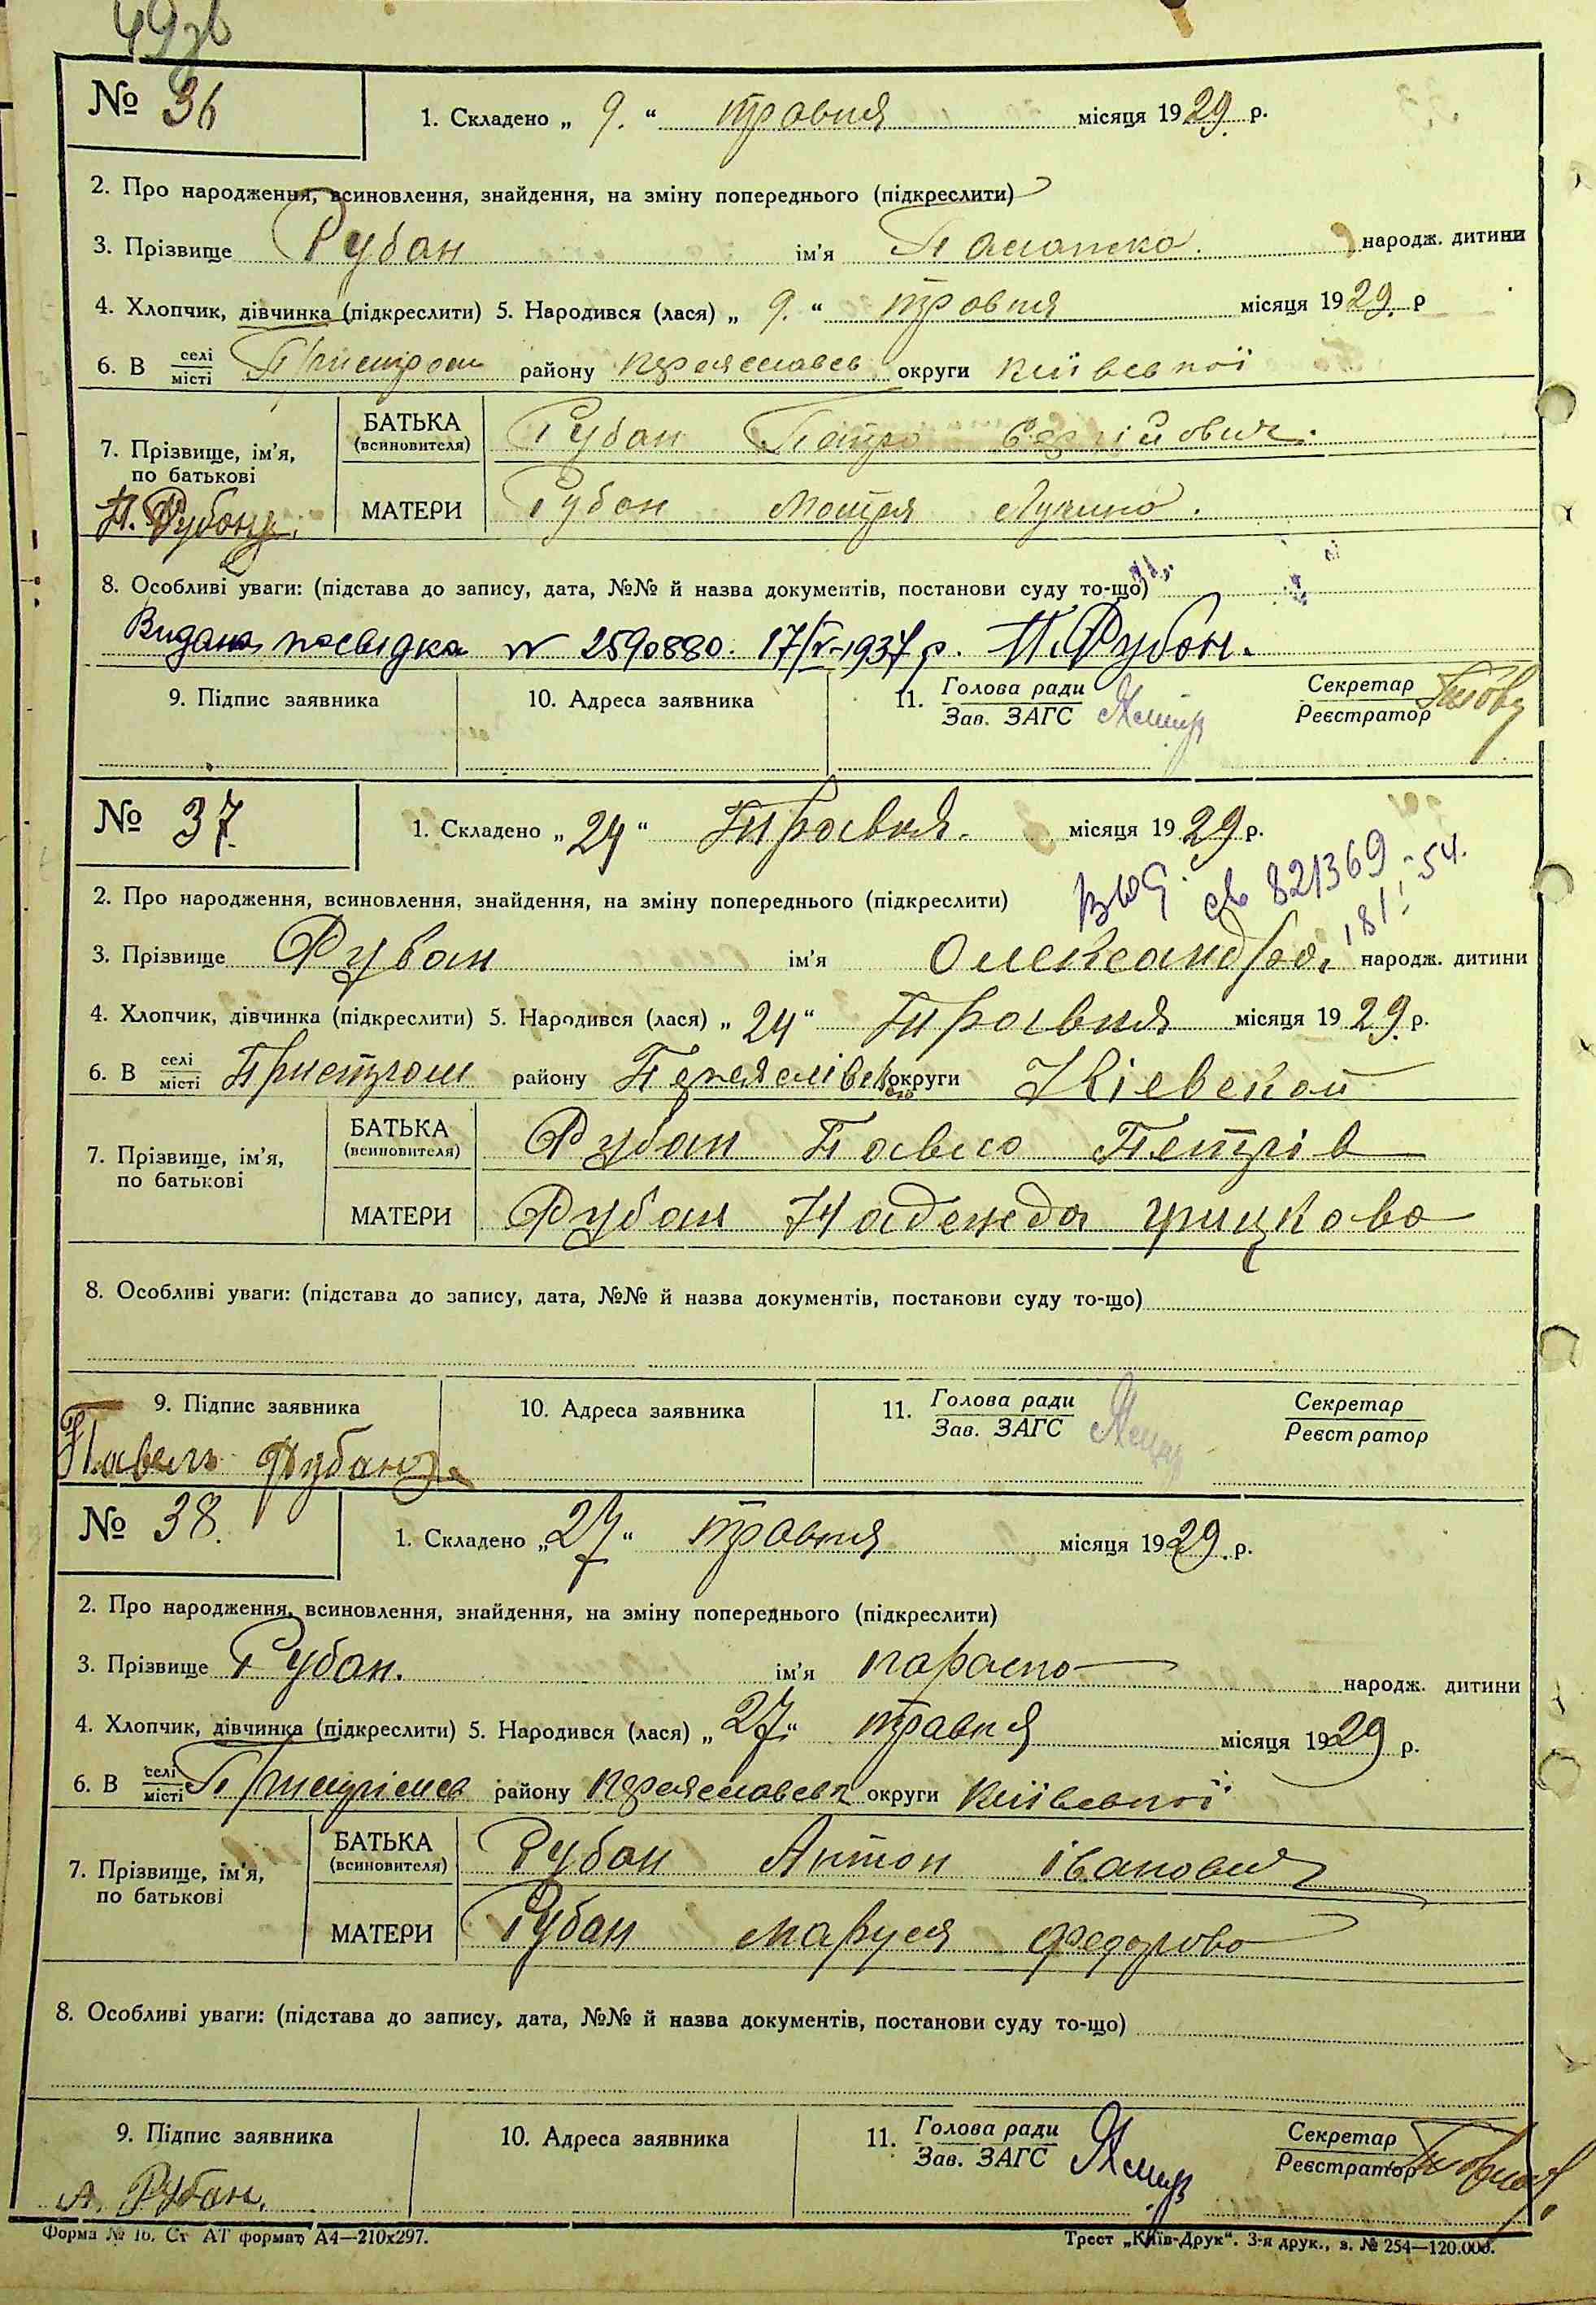 49зв
№ 36
1. Складено „ 9. “ травня місяця 1929. р.
2. Про народження, всиновлення, знайдення, на зміну попереднього (підкреслити)
3. Прізвище Рубан ім'я народж. дитини
4. Хлопчик, дівчинка (підкреслити) 5. Народився (лася) „ 9. “ травня місяця 1929. р
6. В селі/місті району округи Київської
7. Прізвище, ім'я, по батькові
БАТЬКА (всиновителя) Рубан Петро Сергійович.
МАТЕРИ Рубан Мотря
П. Рубон
8. Особливі уваги: (підстава до запису, дата, №№ й назва документів, постанови суду то-що)
Видана посвідка № 2590880. 17/V-1937 р. П. Рубон.
9. Підпис заявника 10. Адреса заявника 11. Голова ради/Зав. ЗАГС Секретар/Реєстратор
№ 37.
1. Складено „ 24 “ Травня. місяця 1929 р.
2. Про народження, всиновлення, знайдення, на зміну попереднього (підкреслити)
821369
3. Прізвище Рубан ім'я Олександра народж. дитини
4. Хлопчик, дівчинка (підкреслити) 5. Народився (лася) „ 24 “ Травня місяця 1929. р.
6. В селі/місті Пристром району округи Кіевской
7. Прізвище, ім'я, по батькові
БАТЬКА (всиновителя) Рубан Павло Петрів
МАТЕРИ Рубан Надежда грицкова
8. Особливі уваги: (підстава до запису, дата, №№ й назва документів, постанови суду то-що)
9. Підпис заявника 10. Адреса заявника 11. Голова ради/Зав. ЗАГС Секретар/Реєстратор
Павелъ Рубан
№ 38.
1. Складено „ 27 “ травня місяця 1929. р.
2. Про народження, всиновлення, знайдення, на зміну попереднього (підкреслити)
3. Прізвище Рубан. ім'я народж. дитини
4. Хлопчик, дівчинка (підкреслити) 5. Народився (лася) „ 27 “ травня місяця 1929 р.
6. В селі/місті району округи Київської
7. Прізвище, ім'я, по батькові
БАТЬКА (всиновителя) Рубан Антон іванович
МАТЕРИ Рубан маруся федорова
8. Особливі уваги: (підстава до запису, дата, №№ й назва документів, постанови суду то-що)
9. Підпис заявника 10. Адреса заявника 11. Голова ради/Зав. ЗАГС Секретар/Реєстратор
А. Рубан.
Форма № 1б. Ст АТ формат А4—210х297. Трест „Київ-Друк“. 3-я друк., з. № 254—120.000.